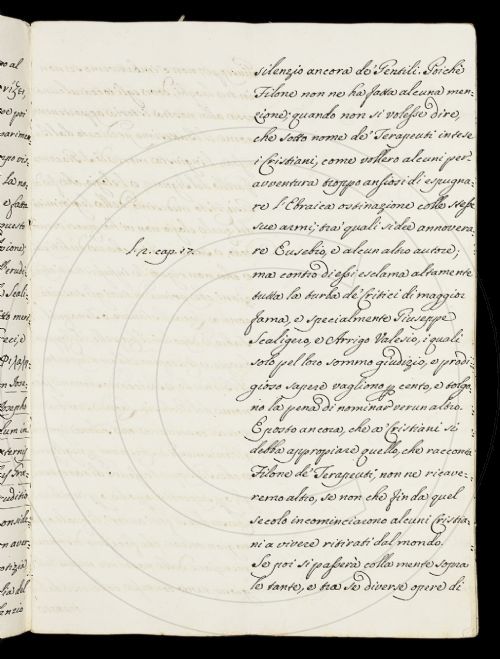 silenzio ancora de' Gentili. Poichè
Filone non ne ha fatta alcuna men-
zione; quando non si volesse dire,
che sotto nome de' Terapeuti intese
i Cristiani, come vollero alcuni per
avventura troppo ansiosi di espugna-
re l'Ebraica ostinazione colle stesse
sue armi; tra' quali si dee annovera-
re Eusebio, e alcun altro autore;
l. 2. cap. 17.
ma contro di essi esclama altamente
tutta la turba de' Critici di maggior
fama, e specialmente Giuseppe
Scaligero, e Arrigo Valesio, i quali
solo pel loro sommo giudizio, e prodi-
gioso sapere vagliono p cento, e tolgo-
no la pena di nominar verun altro.
E posto ancora, che a' Cristiani si
debba appropiare quello, che racconta
Filone de' Terapeuti, non ne ricave-
remo altro, se non che fin da quel
secolo incominciarono alcuni Cristia-
ni a vivere ritirati dal mondo.
Se poi si passerà colla mente sopra
le tante, e tra se diverse opere di